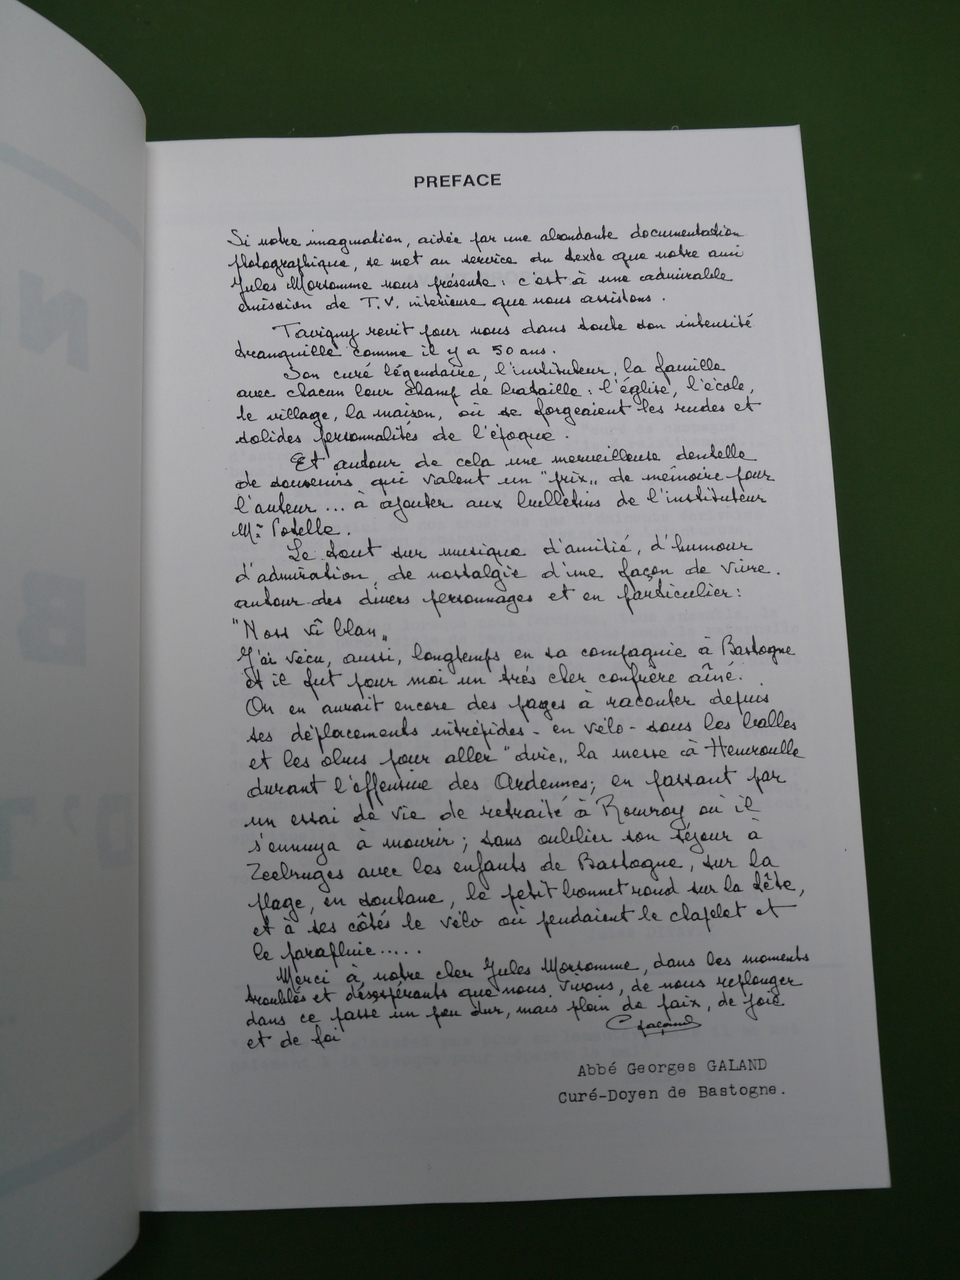 PREFACE
Si notre imagination, aidée par une abondante documentation
photographique, se met au service du texte que notre ami
Jules Morsomme nous présente : c'est à une admirable
émission de T.V. intérieure que nous assistons.
Tavigny revit pour nous dans toute son intensité
tranquille comme il y a 50 ans.
Son curé légendaire, l'instituteur, la famille
avec chacun leur champ de bataille : l'église, l'école,
le village, la maison, où se forgeaient les rudes et
solides personnalités de l'époque.
Et autour de cela une merveilleuse dentelle
de souvenirs qui valent un "prix" de mémoire pour
l'auteur ... à ajouter aux bulletins de l'instituteur
Mr Potelle.
Le tout sur musique d'amitié, d'humour
d'admiration, de nostalgie d'une façon de vivre.
autour des divers personnages et en particulier :
"Noss vî blan"
J'ai vécu, aussi, longtemps en sa compagnie à Bastogne
et il fut pour moi un très cher confrère aîné.
On en aurait encore des pages à raconter depuis
ses déplacements intrépides - en vélo - sous les balles
et les obus pour aller "dire" la messe à Hemroulle
durant l'offensive des Ardennes; en passant par
un essai de vie de retraité à Rouvroy où il
s'ennuya à mourir; sans oublier son séjour à
Zeebruges avec les enfants de Bastogne, sur la
plage, en soutane, le petit bonnet rond sur la tête,
et à ses côtés le vélo où pendaient le chapelet et
le parapluie.....
Merci à notre cher Jules Morsomme, dans les moments
troublés et désespérants que nous vivons, de nous replonger
dans ce passé un peu dur, mais plein de paix, de joie
et de foi
Abbé Georges GALAND
Curé-Doyen de Bastogne.
N
B